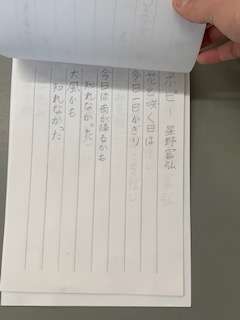 ポピー 星野富弘
花が咲く日は
今日一日かぎり
今日は雨が降るかも
知れなかった
大風かも
知れなかった